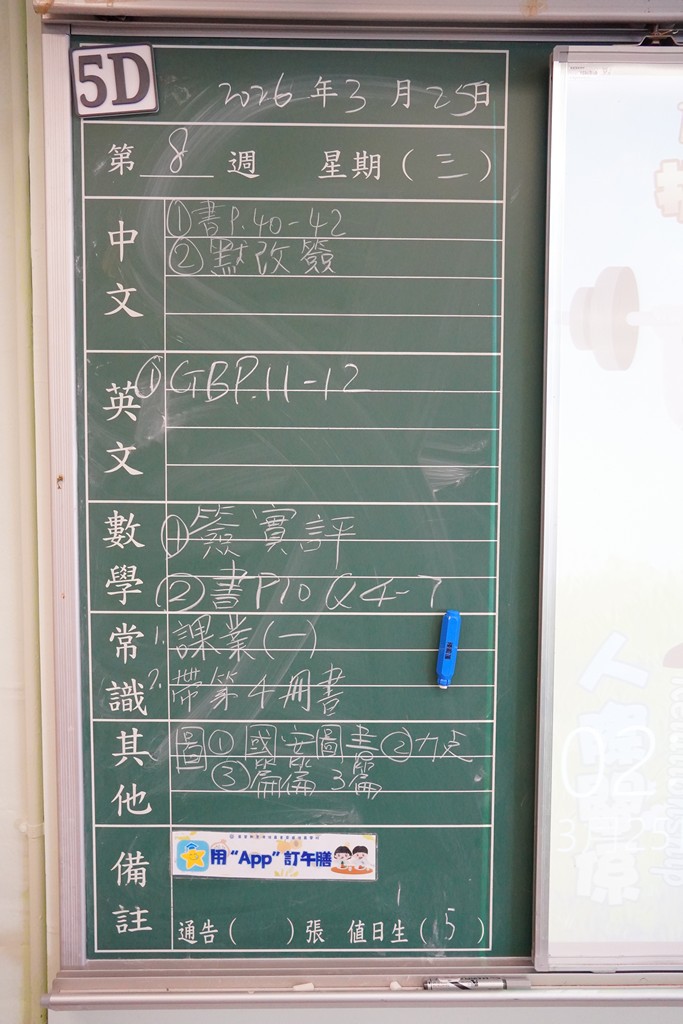 5D
2026年3月25日
第8週 星期(三)
中文
①書P.40-42
②默改簽
英文
①GBP.11-12
數學
①簽實評
②書P10 Q4-7
常識
1.課業(一)
2.帶第4冊書
其他
圖①國安圖畫②九点
③篇 3篇
備註
用“App”訂午膳
通告( )張 值日生(5)